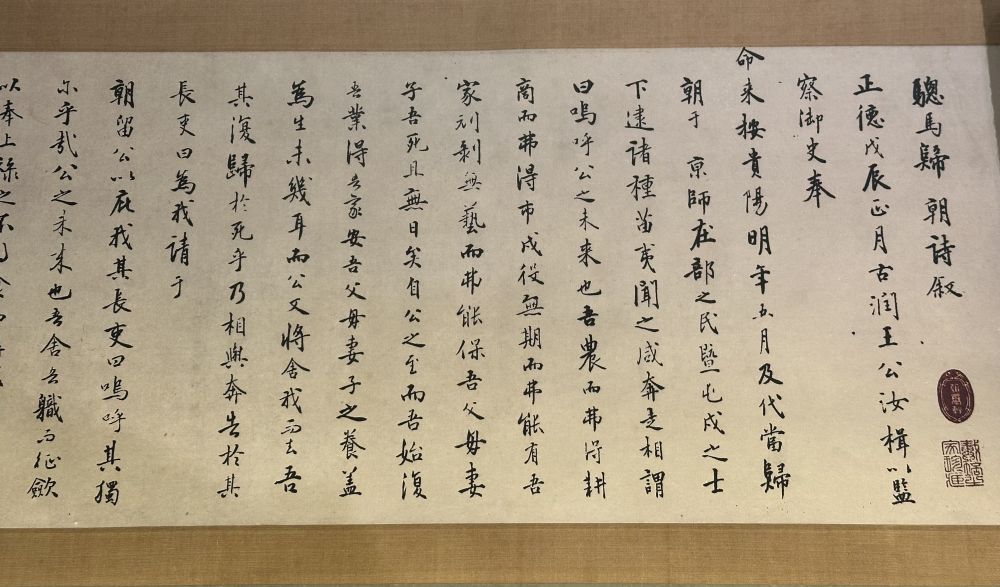 驄馬歸 朝詩叙
正德戊辰正月古潤王公汝楫以監
察御史奉
命来按貴陽明年五月及代當歸
朝于 京師在部之民暨屯戍之士
下逮諸種苗夷聞之咸奔走相謂
曰嗚呼公之未来也吾農而弗得耕
商而弗得市戍役無期而弗能有吾
家刓剝無藝而弗能保吾父母妻
子吾死且無日矣自公之至而吾始復
吾業得吾家安吾父母妻子之養蓋
為生未幾耳而公又將舍我而去吾
其復歸於死乎乃相與奔告於其
長吏曰為我請于
朝留公以庇我其長吏曰嗚呼其獨
尓乎哉公之未来也吾舍吾職而征歛
以奉上祿之不